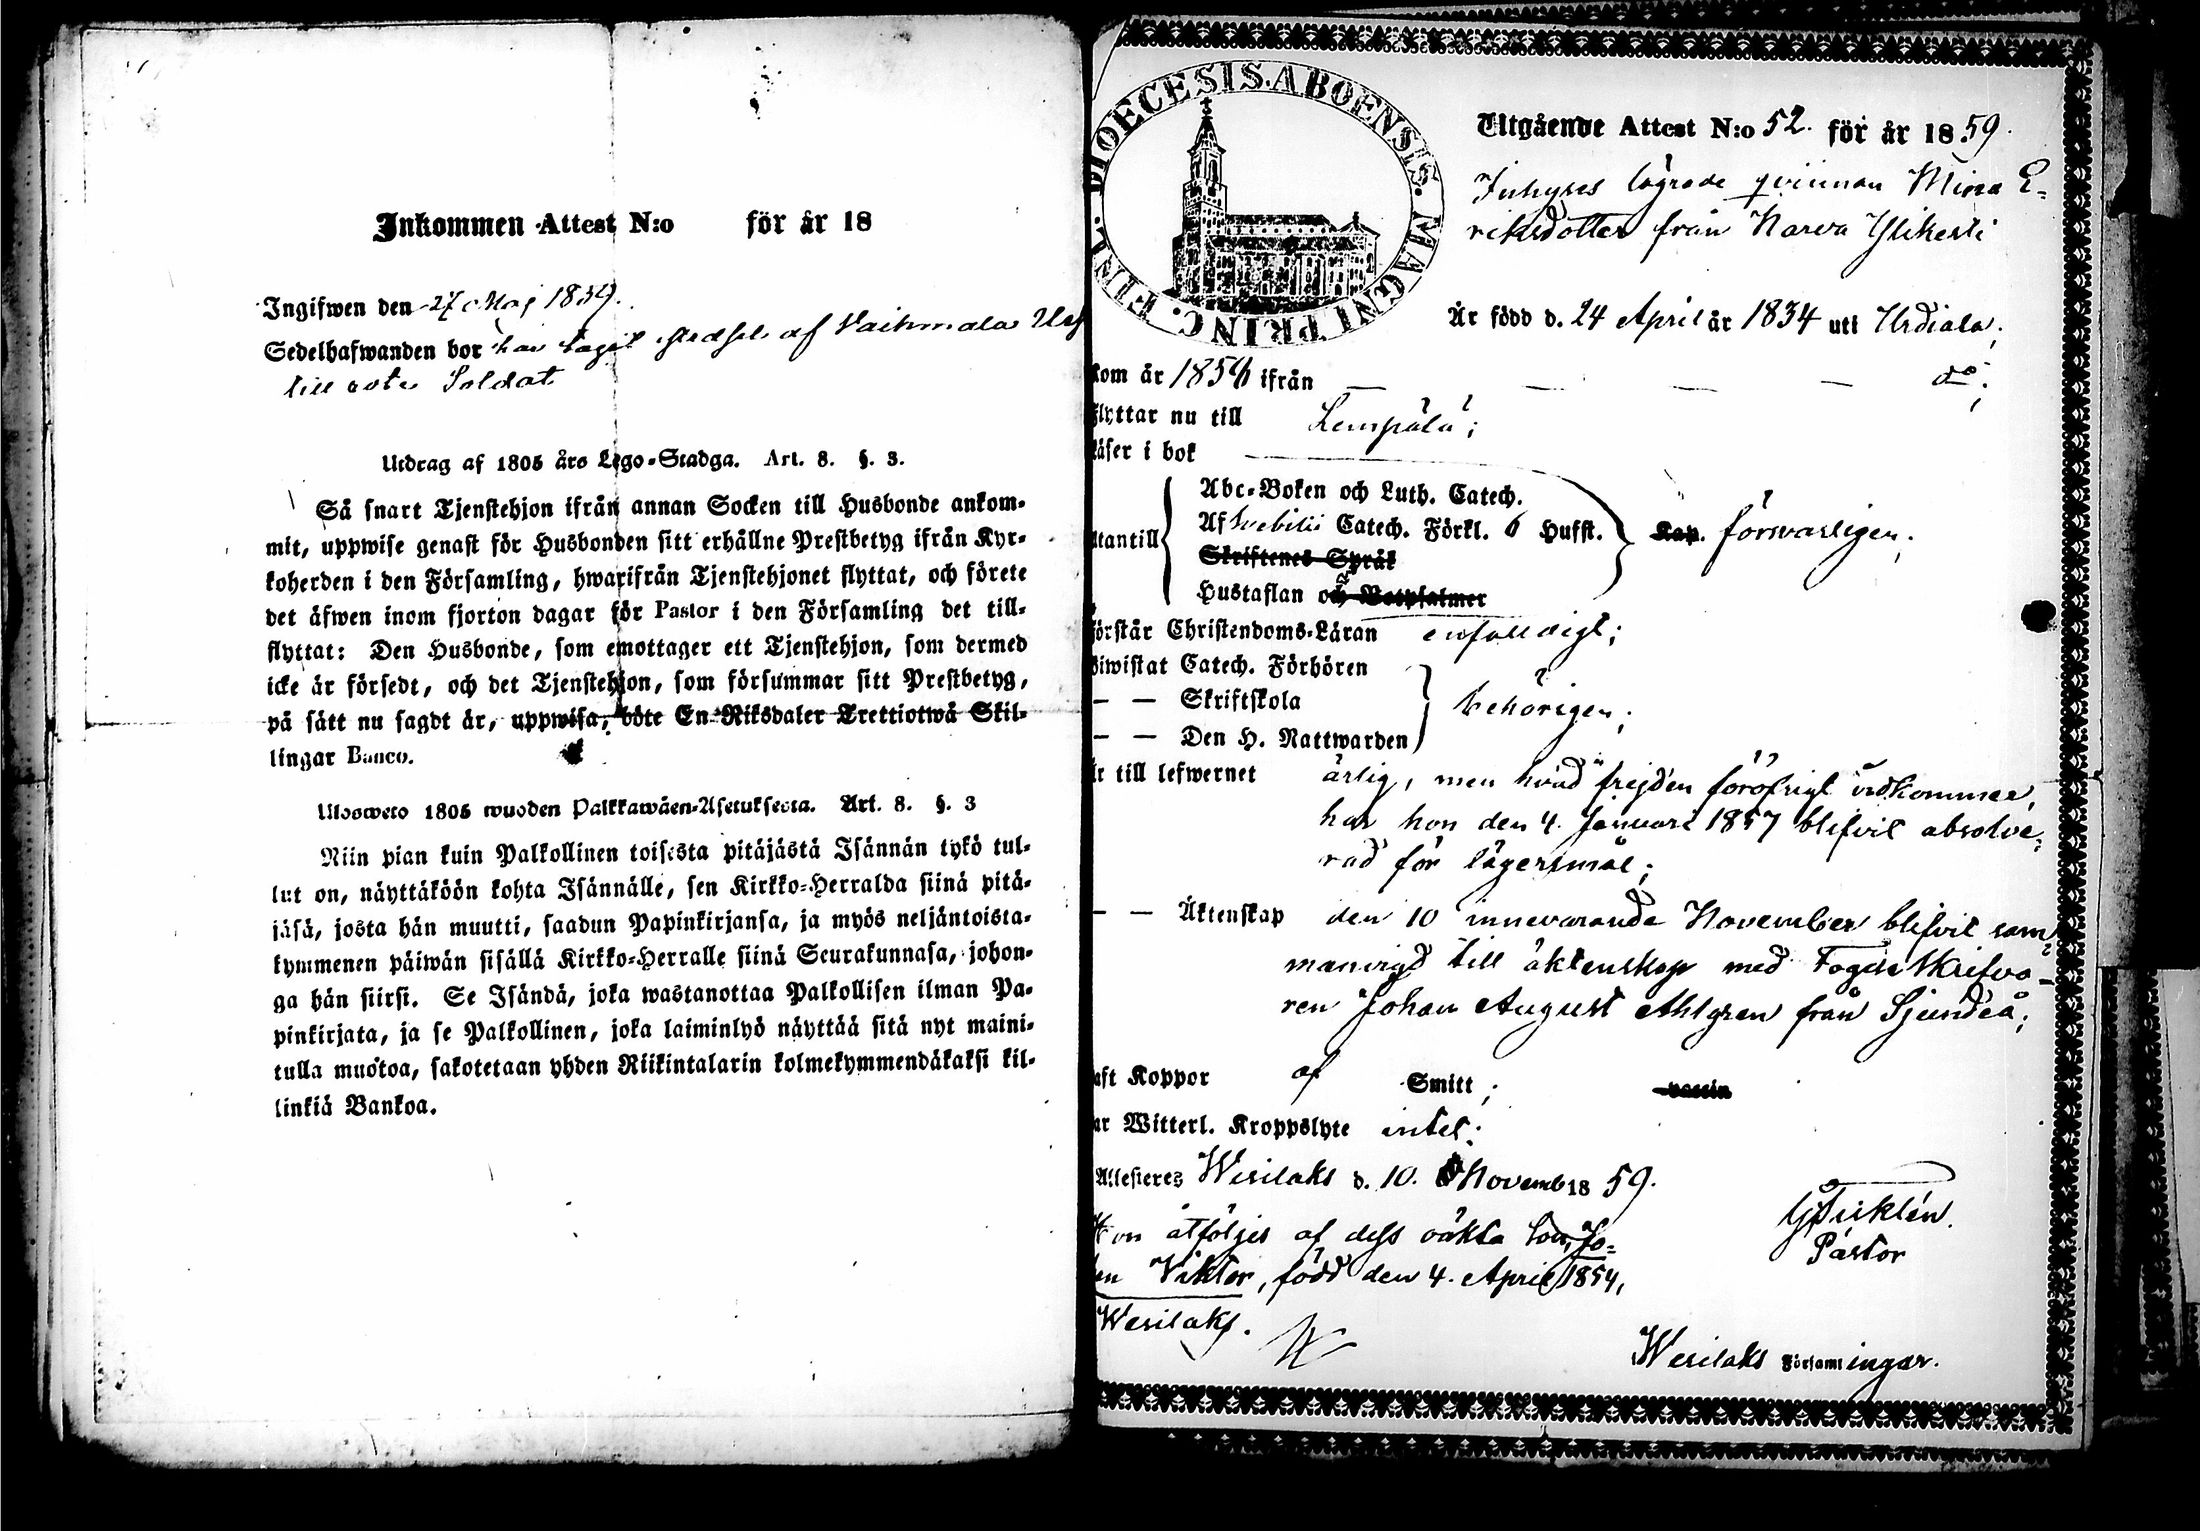 Inkommen Attest N:o för år 18
Ingifwen den 27 Maj 1859.
Sedelhafwanden bor har tagit städsel af Vaihmala
till rote Soldat
Utdrag af 1805 års Lego-Stadga. Art. 8. §. 3.
Så snart Tjenstehjon ifrån annan Socken till Husbonde ankom-
mit, uppwise genast för Husbonden sitt erhållne Prestbetyg ifrån Kyr-
koherden i den Församling, hwarifrån Tjenstehjonet flyttat, och förete
det äfwen inom fjorton dagar för Pastor i den Församling det till-
flyttat: Den Husbonde, som emottager ett Tjenstehjon, som dermed
icke är försedt, och det Tjenstehjon, som försummar sitt Prestbetyg,
på sätt nu sagdt är, uppwisa, böte En Riksdaler Trettiotwå Skil-
lingar Banco.
Ulosweto 1805 wuoden Palkkawäen-Asetuksesta. Art. 8. §. 3
Niin pian kuin Palkollinen toisesta pitäjästä Isännän tykö tul-
lut on, näyttäköön kohta Isännälle, sen Kirkko-Herralda siinä pitä-
jäsä, josta hän muutti, saadun Papinkirjansa, ja myös neljäntoista-
kymmenen päiwän sisällä Kirkko-Herralle siinä Seurakunnasa, johon-
ga hän siirsi. Se Isändä, joka wastanottaa Palkollisen ilman Pa-
pinkirjata, ja se Palkollinen, joka laiminlyö näyttää sitä nyt maini-
tulla muotoa, sakotetaan yhden Riikintalarin kolmekymmendäkaksi kil-
linkiä Bankoa.
DIOECESIS. ABOENSIS. MAGNI PRINC. FINL.
Utgående Attest N:o 52. för år 1859.
Inhyses lägrade qvinnan Mina E-
riksdotter från Narva Ylikesti
Är född d. 24 April år 1834 uti Urdiala;
kom år 1854 ifrån — — — — do;
flyttar nu till Lempälä;
läser i bok
Abc-Boken och Luth. Catech.
utantill Af Svebilii Catech. Förkl. 6 Hufst. Kap. försvarligen;
Skriftenes Språk
Hustaflan och Botpsalmer
förstår Christendoms-Läran enfalldigt;
biwistat Catech. Förhören
— — Skriftskola behörigen;
— — Den H. Nattwarden
är till lefwernet ärlig, men hvad frejden föröfrigt vidkommer,
har hon den 4. Januari 1857 blifvit absolve-
rad för lägersmål;
— — Äktenskap den 10 innevarande November blifvit sam-
manvigd till äktenskap med Fogde Skrifva-
ren Johan August Ahlgren från Sjundeå;
haft Koppor af Smitt; vaccin
har Witterl. Kroppslyte intet;
Attesteres Wesilaks d. 10. Novemb 1859.
Hon åtföljes af dess oäkta Son, Jo-
han Viktor, född den 4. April 1854,
Wesilaks.
Pastor
Wesilaks Församlingar.